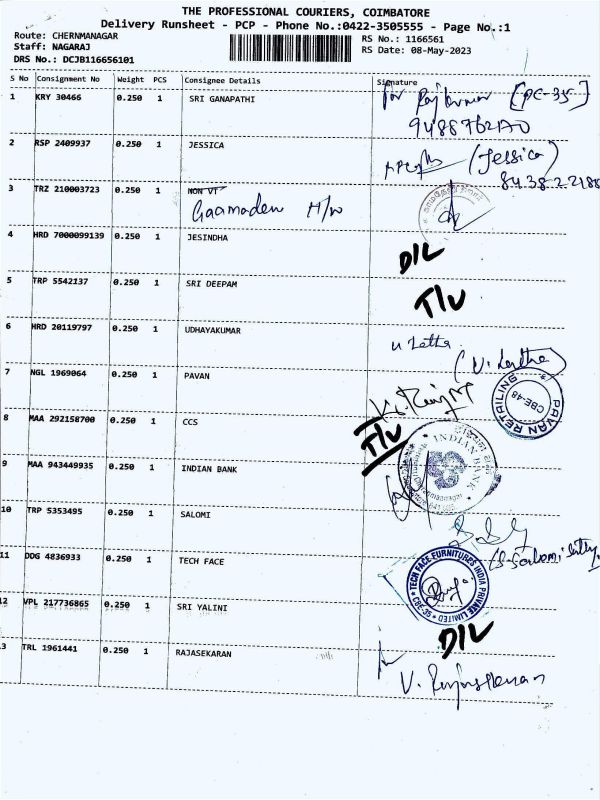 THE PROFESSIONAL COURIERS, COIMBATORE
Delivery Runsheet - PCP - Phone No.:0422-3505555 - Page No.:1
Route: CHERNMANAGAR
RS No.: 1166561
Staff: NAGARAJ
RS Date: 08-May-2023
DRS No.: DCJB116656101
S No Consignment No Weight PCS Consignee Details Signature
1 KRY 30466 0.250 1 SRI GANAPATHI
2 RSP 2409937 0.250 1 JESSICA (Jessica)
3 TRZ 210003723 0.250 1 NON VT
4 HRD 7000099139 0.250 1 JESINDHA D/L
5 TRP 5542137 0.250 1 SRI DEEPAM T/U
6 HRD 20119797 0.250 1 UDHAYAKUMAR
7 NGL 1969064 0.250 1 PAVAN
PAVAN RETAILING
CBE-48
8 MAA 292158700 0.250 1 CCS T/U
9 MAA 943449935 0.250 1 INDIAN BANK
INDIAN BANK
10 TRP 5353495 0.250 1 SALOMI
11 DDG 4836933 0.250 1 TECH FACE
TECH FACE FURNITURES INDIA PRIVATE LIMITED
12 VPL 217736865 0.250 1 SRI YALINI D/L
3 TRL 1961441 0.250 1 RAJASEKARAN